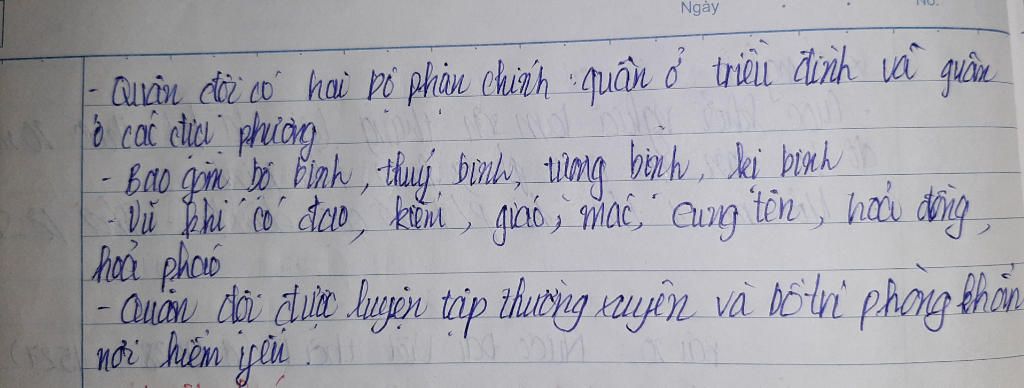 Ngày No.
- Quân đội có hai bộ phận chính : quân ở triều đình và quân
ở các địa phương
- Bao gồm bộ binh, thuỷ binh, tượng binh, kị binh
- Vũ khí có đao, kiếm, giáo, mác, cung tên, hoả đồng,
hoả pháo
- Quân đội được luyện tập thường xuyên và bố trí phòng
nơi hiểm yếu.